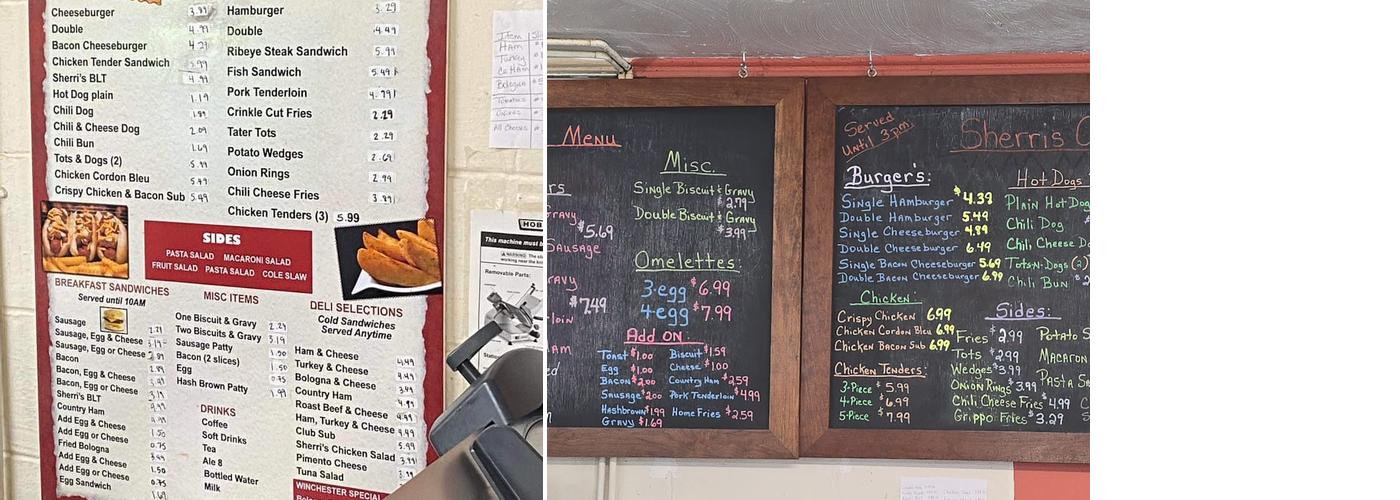 Cheeseburger 3.99
Double 4.99
Bacon Cheeseburger 4.29
Chicken Tender Sandwich 5.99
Sherri's BLT 4.99
Hot Dog plain 1.19
Chili Dog 1.89
Chili & Cheese Dog 2.09
Chili Bun 1.69
Tots & Dogs (2) 5.99
Chicken Cordon Bleu 5.49
Crispy Chicken & Bacon Sub 5.49
Hamburger 3.29
Double 4.49
Ribeye Steak Sandwich 5.99
Fish Sandwich 5.49
Pork Tenderloin 4.79
Crinkle Cut Fries 2.29
Tater Tots 2.29
Potato Wedges 2.69
Onion Rings 2.99
Chili Cheese Fries 3.99
Chicken Tenders (3) 5.99
SIDES
PASTA SALAD MACARONI SALAD
FRUIT SALAD PASTA SALAD COLE SLAW
BREAKFAST SANDWICHES
Served until 10AM
Sausage
Sausage, Egg & Cheese
Sausage, Egg or Cheese
Bacon
Bacon, Egg & Cheese
Bacon, Egg or Cheese
Sherri's BLT
Country Ham
Add Egg & Cheese
Add Egg or Cheese
Fried Bologna
Add Egg & Cheese
Add Egg or Cheese
Egg Sandwich
MISC ITEMS
One Biscuit & Gravy 2.29
Two Biscuits & Gravy 3.19
Sausage Patty 1.50
Bacon (2 slices) 1.50
Egg 0.75
Hash Brown Patty 1.99
DRINKS
Coffee
Soft Drinks
Tea
Ale 8
Bottled Water
Milk
DELI SELECTIONS
Cold Sandwiches
Served Anytime
Ham & Cheese 4.49
Turkey & Cheese 4.49
Bologna & Cheese 3.99
Country Ham 4.99
Roast Beef & Cheese 4.99
Ham, Turkey & Cheese 4.99
Club Sub 5.99
Sherri's Chicken Salad 3.99
Pimento Cheese
Tuna Salad
WINCHESTER SPECIAL
Item
Ham
Turkey
Bologna
Tomatoes
All Cheeses
HOB
This machine must b
WARNING
Removable Parts:
Menu
rs
Gravy
$5.69
Sausage
ravy
$7.49
loin
AM
Misc.
Single Biscuit & Gravy
$2.79
Double Biscuit & Gravy
$3.99
Omelettes:
3-egg $6.99
4-egg $7.99
Add ON
Toast $1.00 Biscuit $1.59
Egg $1.00 Cheese $1.00
Bacon $2.00 Country Ham $2.59
Sausage $2.00 Pork Tenderloin $4.99
Hashbrown $1.99 Home Fries $2.59
Gravy $1.69
Served
Until 3pm.
Sherris C
Burger's:
Single Hamburger $4.39
Double Hamburger 5.49
Single Cheeseburger 4.89
Double Cheeseburger 6.49
Single Bacon Cheeseburger 5.69
Double Bacon Cheeseburger 6.99
Chicken:
Crispy Chicken 6.99
Chicken Cordon Bleu 6.99
Chicken Bacon Sub 6.99
Chicken Tenders:
3-Piece $5.99
4-Piece $6.99
5-Piece $7.99
Hot Dogs
Plain Hot Dog
Chili Dog
Chili Cheese Do
Tots-N-Dogs (2)
Chili Bun
Sides:
Fries $2.99 Potato S
Tots $2.99 Macaron
Wedges $3.99 Pasta Sa
Onion Rings $3.99
Chili Cheese Fries $4.99
Grippo Fries $3.29